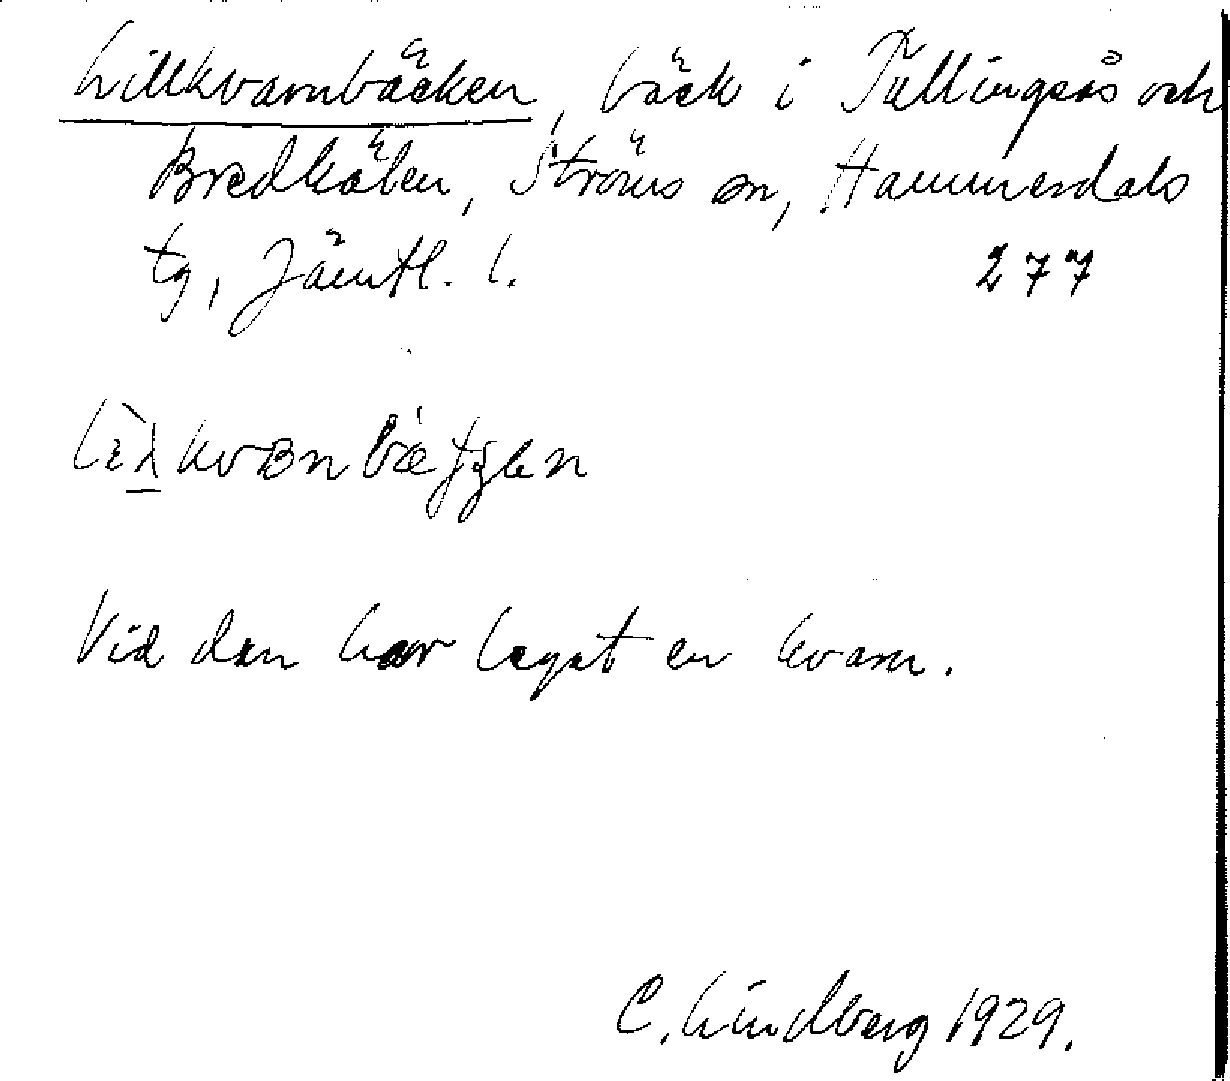 Lillkvarnbäcken, bäck i Tullingsås och
Bredkälen, Ströms sn, Hammerdals
tg, Jämtl. l. 277
Vid den har legat en kvarn.
C. Lindberg 1929.